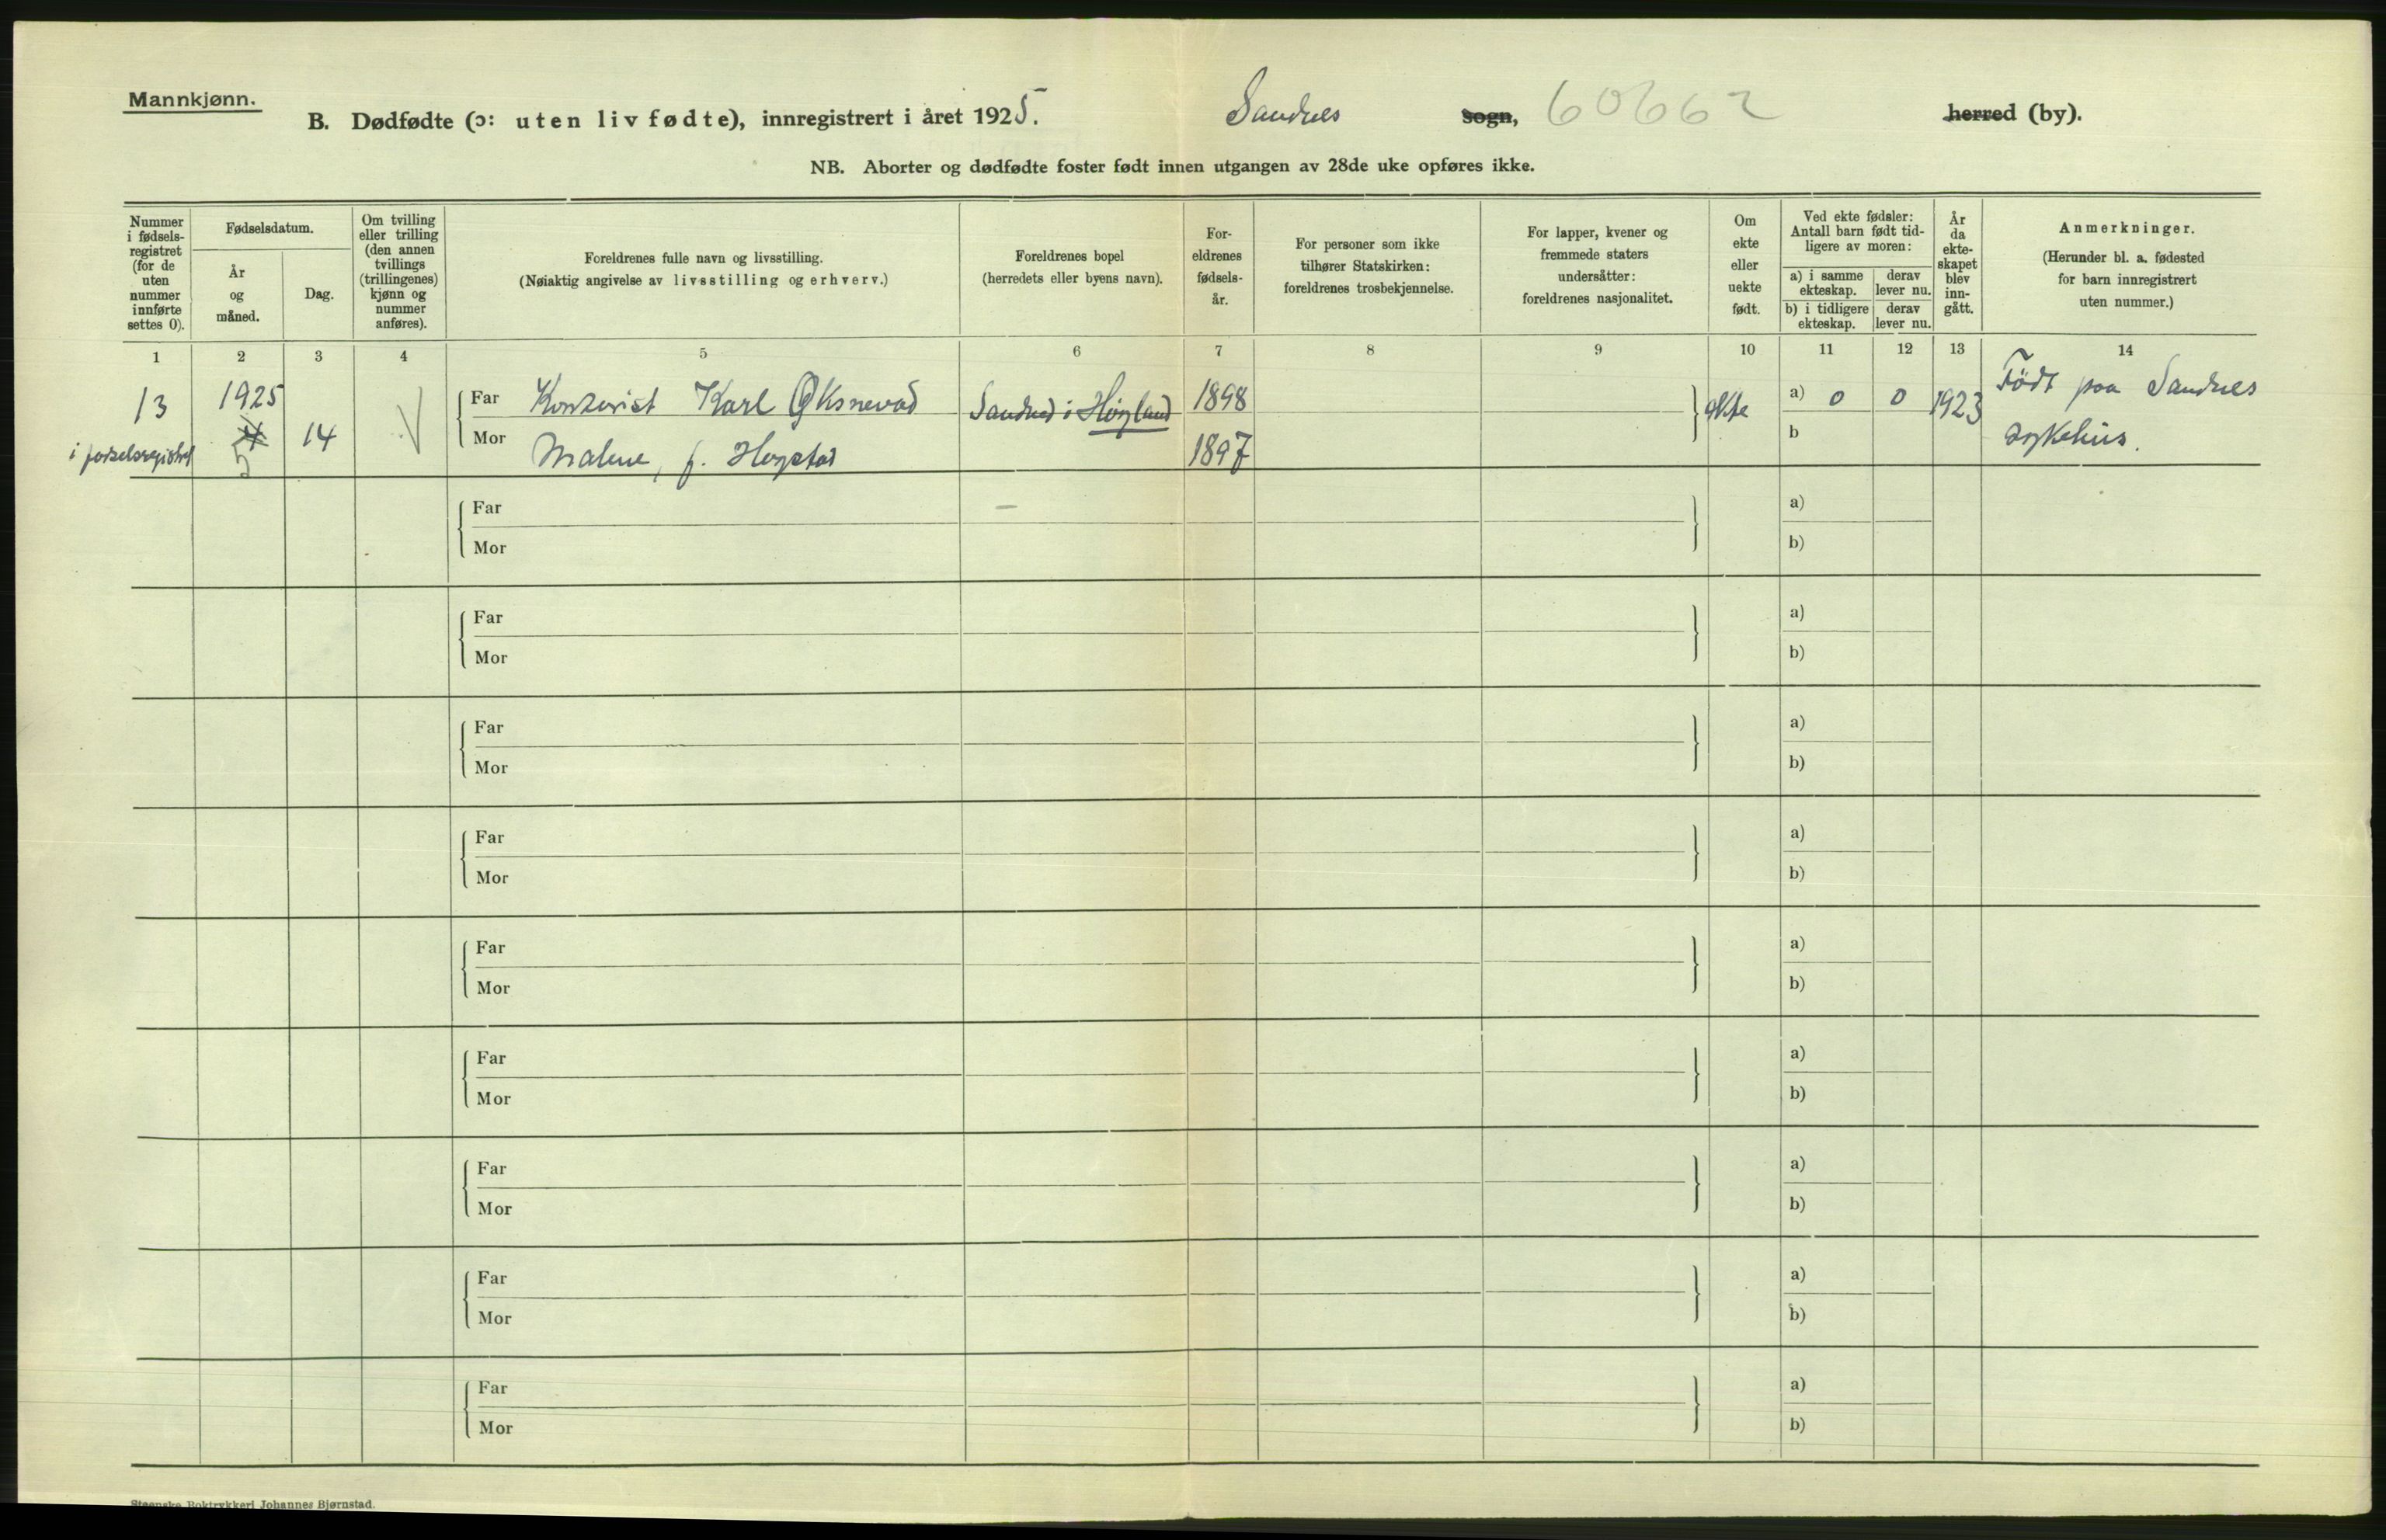 Mannkjønn.
B. Dødfødte (ɔ: uten liv fødte), innregistrert i året 1925. Sandnes sogn, 60662 herred (by).
NB. Aborter og dødfødte foster født innen utgangen av 28de uke opføres ikke.
Nummer
i fødsels-
registret
(for de
uten
nummer
innførte
settes 0).
Fødselsdatum.
År
og
måned.
Dag.
Om tvilling
eller trilling
(den annen
tvillings
(trillingenes)
kjønn og
nummer
anføres).
Foreldrenes fulle navn og livsstilling.
(Nøiaktig angivelse av livsstilling og erhverv.)
Foreldrenes bopel
(herredets eller byens navn).
For-
eldrenes
fødsels-
år.
For personer som ikke
tilhører Statskirken:
foreldrenes trosbekjennelse.
For lapper, kvener og
fremmede staters
undersåtter:
foreldrenes nasjonalitet.
Om
ekte
eller
uekte
født.
Ved ekte fødsler:
Antall barn født tid-
ligere av moren:
a) i samme
ekteskap.
derav
lever nu.
b) i tidligere
ekteskap.
derav
lever nu.
År
da
ekte-
skapet
blev
inn-
gått.
Anmerkninger.
(Herunder bl. a. fødested
for barn innregistrert
uten nummer.)
1 2 3 4 5 6 7 8 9 10 11 12 13 14
13 1925 Far Kontorist Karl Øksnevad Sandnes i Høyland 1898 ekte a) 0 0 1923 Födt paa Sandnes
i fødselsregistret 4 5 14 Mor Malene, f. Hogstad 1897 b sykehus.
Far a)
Mor b)
Far a)
Mor b)
Far a)
Mor b)
Far a)
Mor b)
Far a)
Mor b)
Far a)
Mor b)
Far a)
Mor b)
Far a)
Mor b)
Far a)
Mor b)
Steenske Boktrykkeri Johannes Bjørnstad.